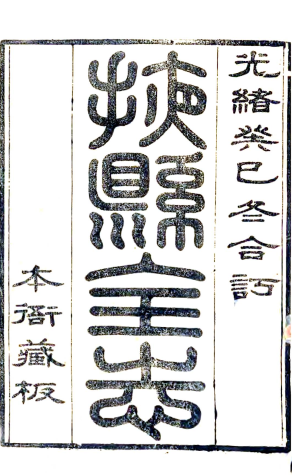 光緒癸巳冬合訂
掖縣全志
本衙藏板